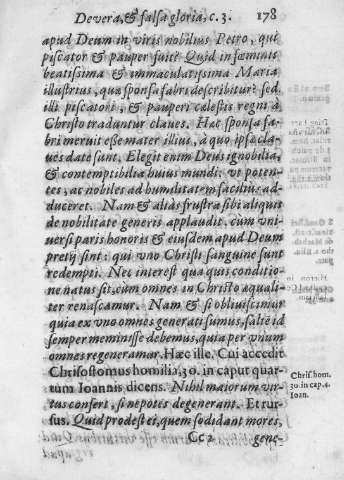 De vera, & falsa gloria, c. 3. 178
apud Deum in viris nobilius Petro, qui
piscator & pauper fuit? Quid in fœminis
beatissima & immaculatissima Maria
illustrius, quæ sponsa fabri describitur? sed
illi piscatori, & pauperi cælestis regni à
Christo traduntur claues. Hæc sponsa fa-
bri meruit esse mater illius, à quo ipsæ cla-
ues datæ sunt. Elegit enim Deus ignobilia,
& contemptibilia huius mundi: vt poten-
tes, ac nobiles ad humilitatem facilius ad-
duceret. Nam & aliàs frustra sibi aliquis
de nobilitate generis applaudit, cum vni-
uersi paris honoris & eiusdem apud Deum
pretij sint: qui vno Christi sanguine sunt
redempti. Nec interest qua quis conditio-
ne natus sit, cum omnes in Christo æquali-
ter renascamur. Nam & si obliuiscimur
quia ex vno omnes generati sumus, saltē id
semper meminisse debemus, quia per vnum
omnes regeneramur. Hæc ille. Cui accedit
Chrisostomus homilia, 30. in caput quar-
tum Ioannis dicens. Nihil maiorum vir-
tus confert, si nepotes degenerant. Et rur-
sus. Quid prodest ei, quem sodidant mores,
Cc 2 gene-
Chris. hom.
30. in cap. 4.
Ioan.